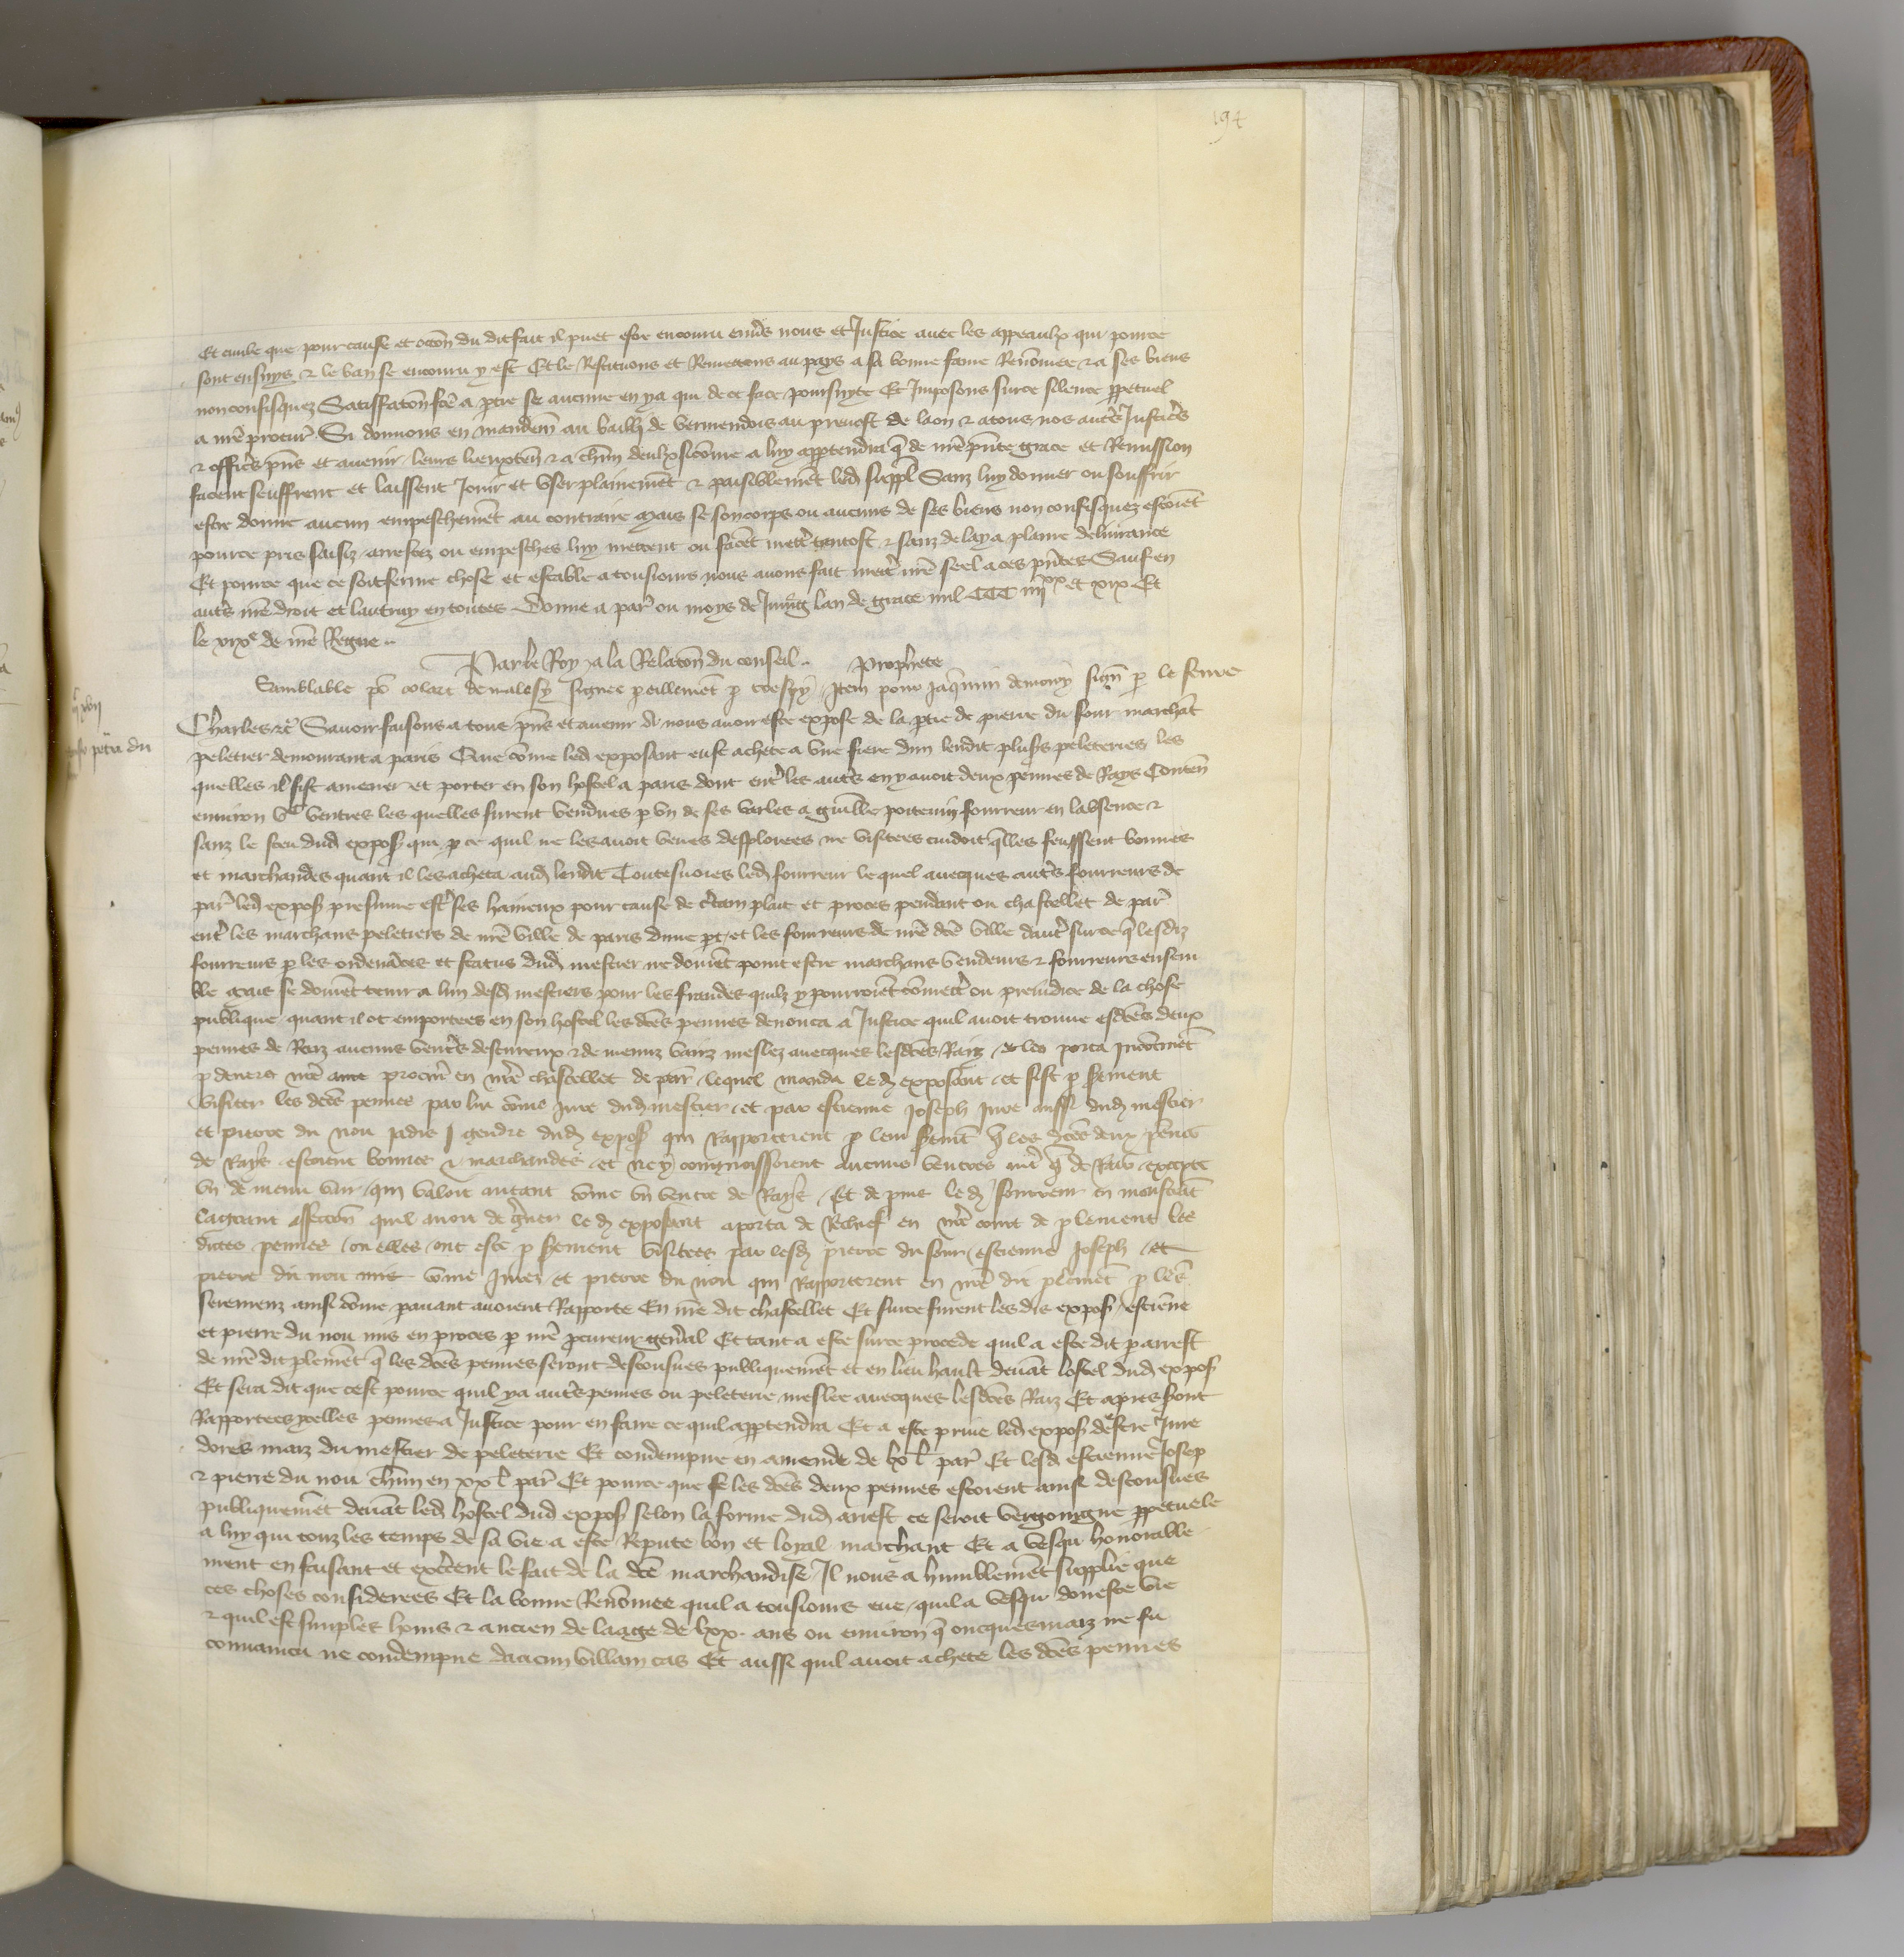 194
Et civile que pour cause et occon du dit fait il puet estre encouru envs nous et Justice avec les appeaulx qui pource
sont ensuys & le ban se encouru y est Et le Restituons et Remettons au pays a sa bonne fame Renomee & a ses biens
non confisquez Satisfacon fce a ptie se aucune en y a qui de ce face poursuyte Et Imposons surce silence ppetuel
a nre procur Si donnons en mandem au bailli de vermendois au prevost de laon & a tous nos autrs Justicrs
& officrs pns et avenir leurs lieuxten & a chun deulx sicome a luy appartendra q de nre pnte grace et Remission
facent seuffrent et laissent Jouir et user plainemet & paisiblemet led suppl Sanz luy donner ou souffrir
estre donne aucun empeschemet au contraire Mais se son corps ou aucuns de ses biens non confisquez estoiet
pource pris saisiz arrestez ou empeschies luy mettent ou facet mettr tantost & sanz delay a plaine delivrance
Et pource que ce soit ferme chose et estable a tousiours nous avons fait mettr nre seel a ces pntes Sauf en
autrs nre droit et lautruy en toutes Donne a par ou moys de Juing lan de grace mil CCC iiijxx et xix Et
le xixe de nre Regne
Par le Roy a la Relacon du conseil Prophete
Semblable po colart de malesy signee peillemet p crespy Item pour Jaquemin demorey sign p le fevre
Charles &c Savoir faisons a tous pns et avenir A nous avoir este expose de la ptie de pierre du four marchat
peletier demourant a paris Que come led exposant eust achete a une fiere dun lendit plusrs peleteries les
quelles il fist amener et porter en son hostel a paris dont entr les autrs en y avoit deux pennes de Rays Conten
environ vc ventres les quelles furent vendues p un de ses varles a guille poitevin fourreur en labsence &
sanz le sceu dud expos qui p ce quil ne les avoit veues desploiees ne visitees cuidoit qlles feussent bonnes
et marchandes quant il les acheta aud lendit Toutesvoies led fourreur lequel avecques autrs fourreurs de
par led expos presume estr ses haineux pour cause de crtain plait et proces pendant ou chastellet de par
entr les marchans peletiers de nre ville de paris dune pt et les fourreurs de nre dce ville dautr surce q lesdiz
fourreurs p les ordenaces et status dud mestier ne doivet point estre marchans vendeurs & fourreurs ensem
ble Mais se doivet tenir a lun desd mestiers pour les fraudes quilz y pourroiet comettr ou preiudice de la chose
publique quant il ot emportees en son hostel les dces pennes denonca a Justice quil avoit trouve esdces deux
pennes de Raiz aucuns ventrs descureux & de menuz vairz meslez avecques lesdces Raiz & les porta Incotinet
p devers nre ame procur en nre chastellet de par lequel manda led exposant et fist p Srement
visiter les dces pennes par lui come Jure dud mestier et par estienne Joseph Jure aussi dud mestier
et pierre du nou jadis gendre dud expos qui Rapporterent p leur Sremt q les dces deux pennes
de Rays estoient bonnes & marchandes et ne y congnoissoient aucuns ventres autr q de Rais excepte
un de menu vair qui valoit autant come un ventre de Rays Et de puis led fourreur en monstrat
laquant affeccon quil avoit de grever led exposant aporta de Rechief en nre court de plement les
dictes pennes ou elles ont este p Srement visitees par lesd pierre du four estienne Joseph et
pierre du nou mis come Jurez et pierre du nou qui Rapporterent en nre dit plemet p leurs
seremenz ainsi come pavant avoient Rapporte En nre dit chastellet Et surce furent les dis expos estiene
et pierre du nou mis en proces p nre pcureur genral Et tant a este surce procede quil a este dit p arrest
de nre dit plemet q les dces pennes seront descousues publiquemet et en lieu hault devat lostel dud expos
Et sera dit que cest pource quil y a autrs pennes ou peleterie meslee avecques lesdces Raiz Et apres sont
Rapportees ycelles pennes a Justice pour en faire ce quil appartendra Et a este prive led expos destre Jure
dores maiz du mestier de peleterie Et condempne en amende de lx l par Et lesd estienne Josep
& pierre du nou chun en xx l par Et pource que se les dces deux pennes estoient ainsi descousues
publiquemet devat led hostel dud expos selon la forme dud arrest ce seroit vergoingne ppetuele
a luy qui touz les temps de sa vie a este Repute bon et loyal marchant Et a vesqu honorable
ment en faisant et excercent le fait de la dce marchandise Il nous a humblemet supplie que
ces choses considerees Et la bonne Renomee quil a tousiours eue quil a vesqu doneste vie
& quil est simples homs & ancien de laage de lxx ans ou environ q oncquesmaiz ne fu
convaincu ne condempne daucun villain cas Et aussi quil avoit achete les dces pennes